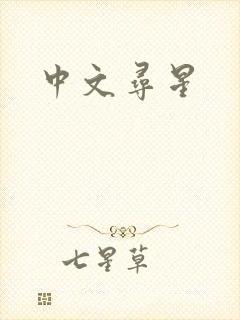 中文尋星
七星草